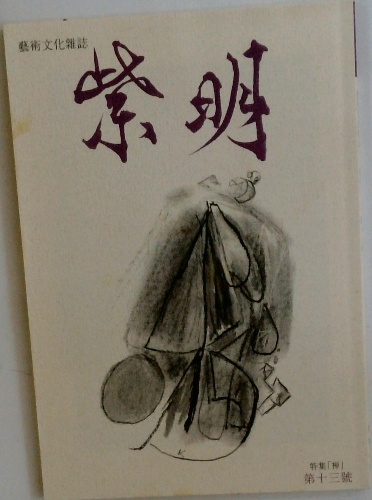 藝術文化雜誌
紫明
特集「禅」
第十三號